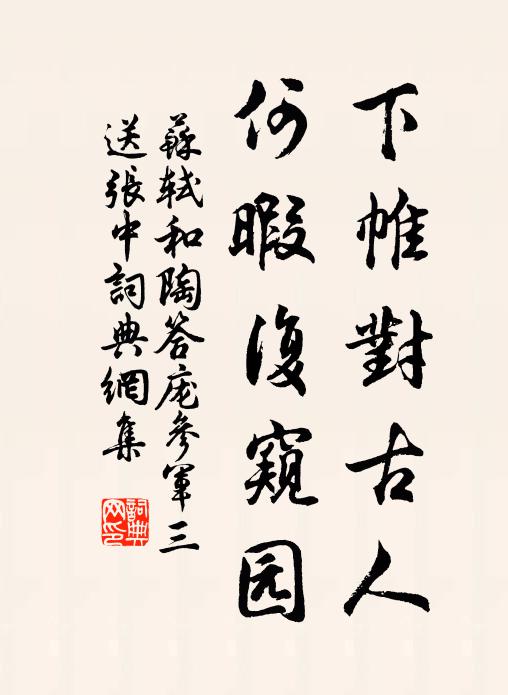 下帷對古人
何暇復窺园
蘇軾和陶答庞參軍三
送張中詞典網集
詞典
网印